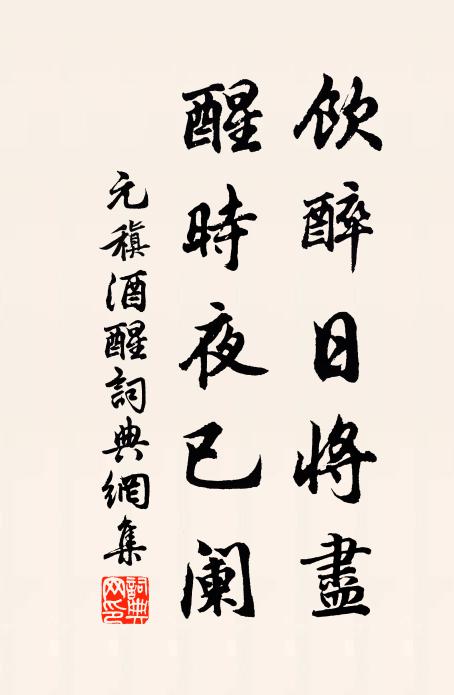 飲醉日將盡
醒時夜已闌
元稹酒醒詞典網集
詞典網印